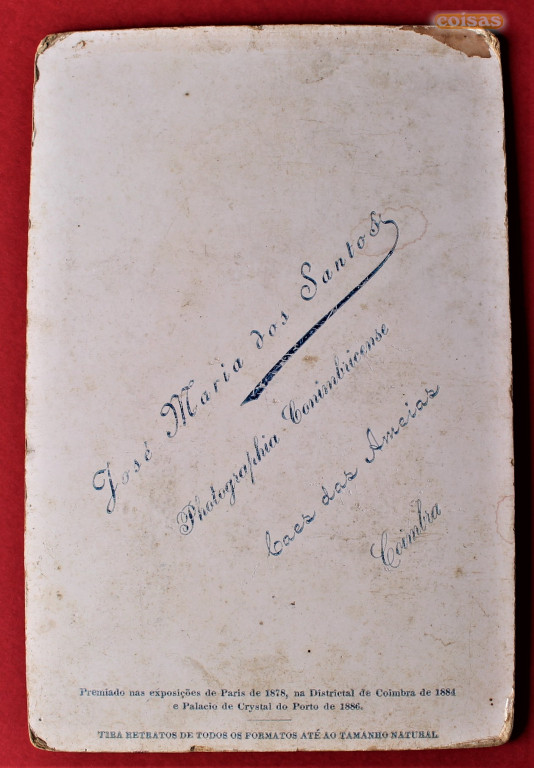 coisas
José Maria dos Santos
Photographia Conimbricense
Caes das Ameias
Coimbra
Premiado nas exposições de Paris de 1878, na Districtal de Coimbra de 1884
e Palacio de Crystal do Porto de 1886.
TIRA RETRATOS DE TODOS OS FORMATOS ATÉ AO TAMANHO NATURAL